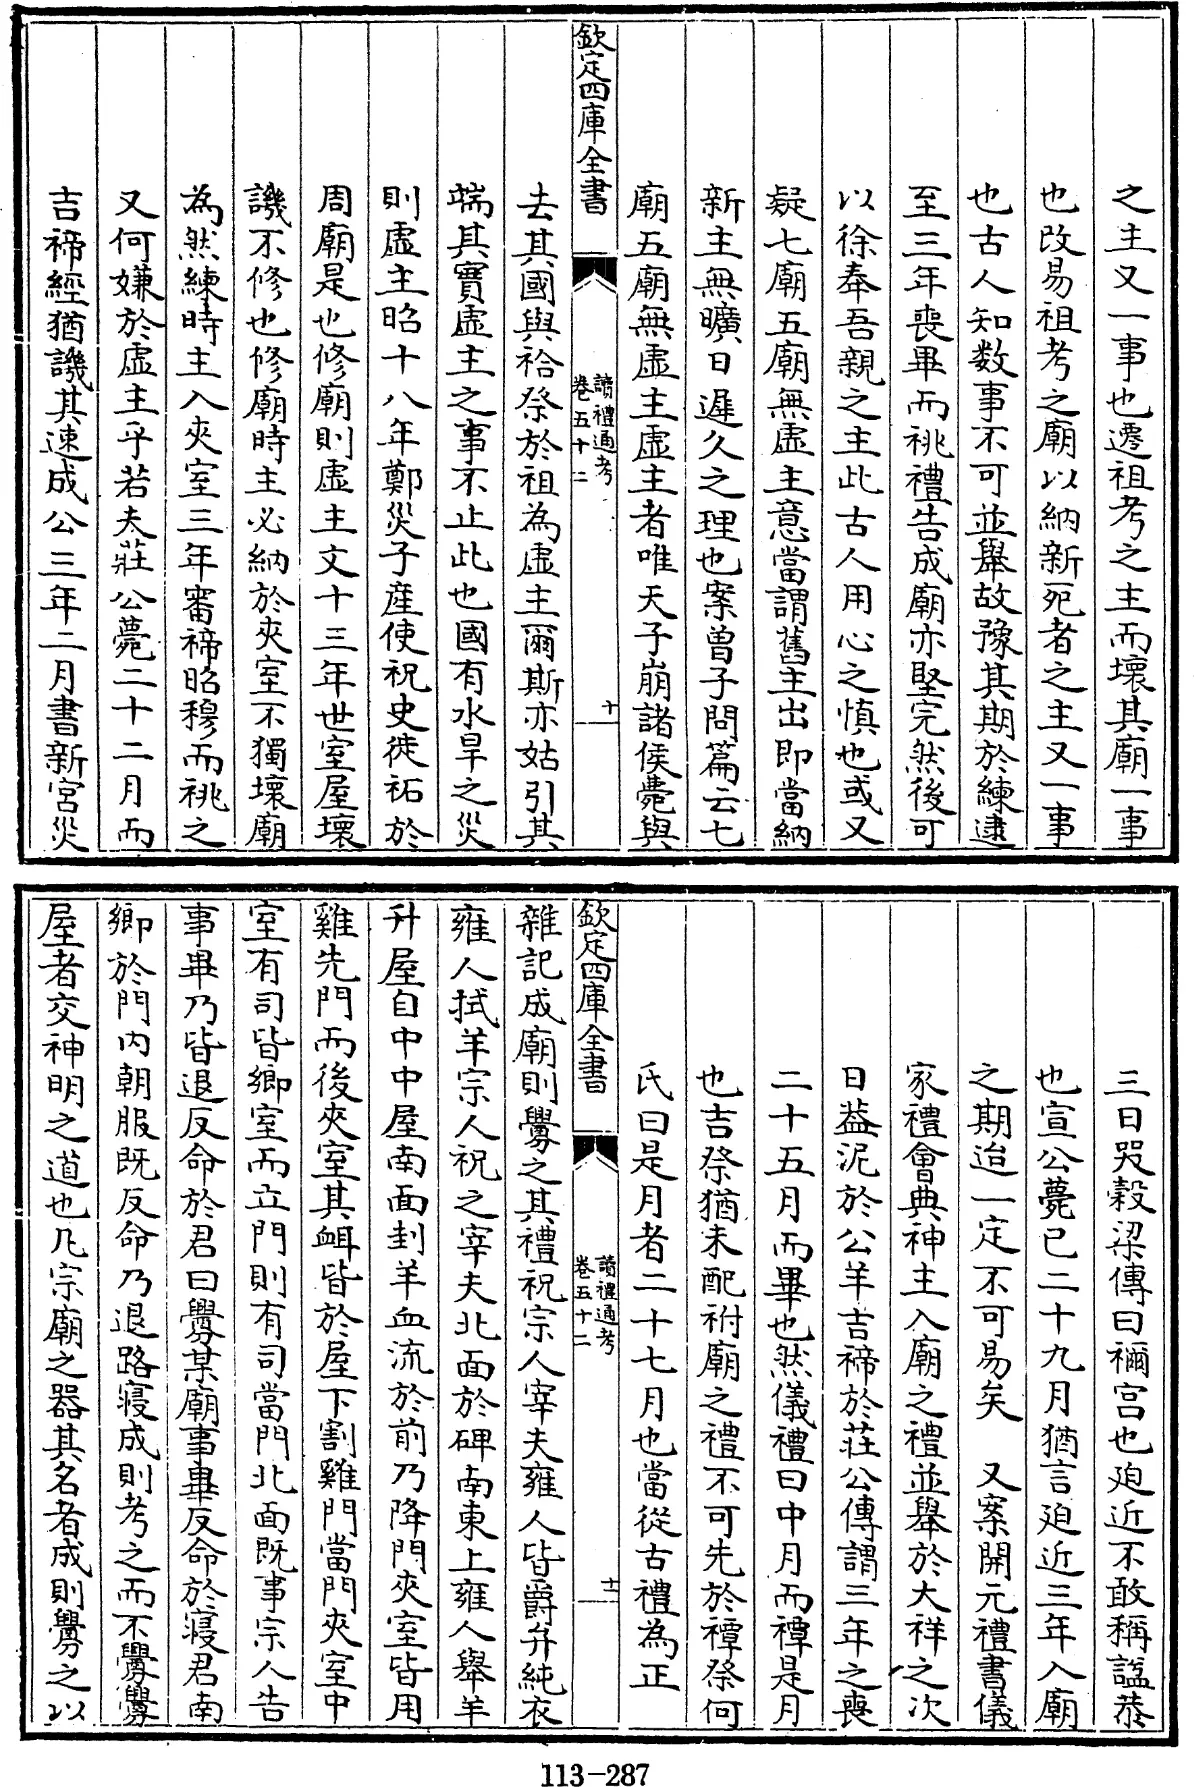 之主又一事也遷祖考之主而壞其廟一事
也改易祖考之廟以納新死者之主又一事
也古人知数事不可並舉故豫其期於練逮
至三年喪畢而祧禮告成廟亦堅完然後可
以徐奉吾親之主此古人用心之慎也或又
疑七廟五廟無虛主意當謂舊主出即當納
新主無曠日遲久之理也案曾子問篇云七
廟五廟無虛主虛主者唯天子崩諸侯薨與
欽定四庫全書
讀禮通考
卷五十二
十
去其國與祫祭於祖為虛主爾斯亦姑引其
端其實虛主之事不止此也國有水旱之災
則虛主昭十八年鄭災子產使祝史徙祏於
周廟是也修廟則虛主文十三年世室屋壞
譏不修也修廟時主必納於夾室不獨壞廟
為然練時主入夾室三年審禘昭穆而祧之
又何嫌於虛主乎若夫莊公薨二十二月而
吉禘經猶譏其速成公三年二月書新宮災
三日哭穀梁傳曰禰宮也廹近不敢稱謚恭
也宣公薨已二十九月猶言廹近三年入廟
之期迨一定不可易矣 又案開元禮書儀
家禮會典神主入廟之禮並舉於大祥之次
日蓋泥於公羊吉禘於莊公傳謂三年之喪
二十五月而畢也然儀禮曰中月而禫是月
也吉祭猶未配祔廟之禮不可先於禫祭何
氏曰是月者二十七月也當從古禮為正
欽定四庫全書
讀禮通考
卷五十二
十一
雜記成廟則釁之其禮祝宗人宰夫雍人皆爵弁純衣
雍人拭羊宗人祝之宰夫北面於碑南東上雍人舉羊
升屋自中中屋南面刲羊血流於前乃降門夾室皆用
雞先門而後夾室其衈皆於屋下割雞門當門夾室中
室有司皆鄉室而立門則有司當門北面既事宗人告
事畢乃皆退反命於君曰釁某廟事畢反命於寢君南
鄉於門內朝服既反命乃退路寢成則考之而不釁釁
屋者交神明之道也凡宗廟之器其名者成則釁之以
113-287